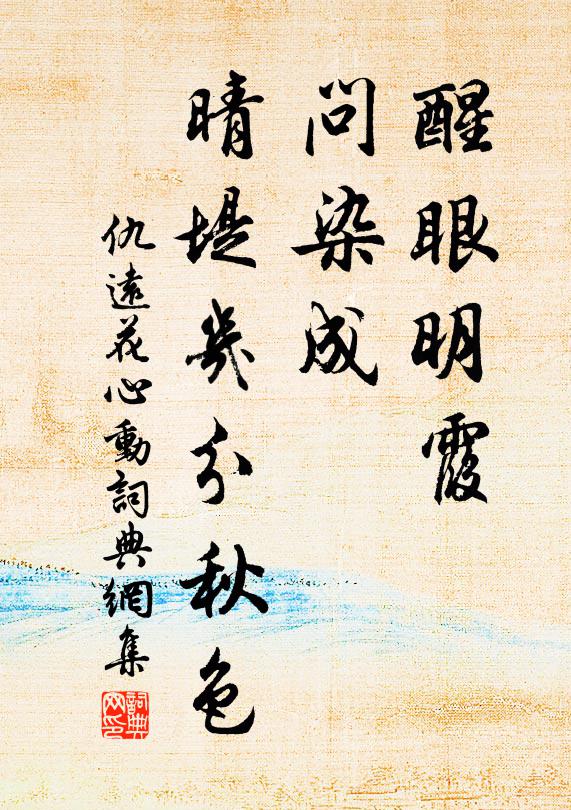 醒眼明霞
問染成
晴堤幾分秋色
仇遠花心動詞典網集
詞典
网印